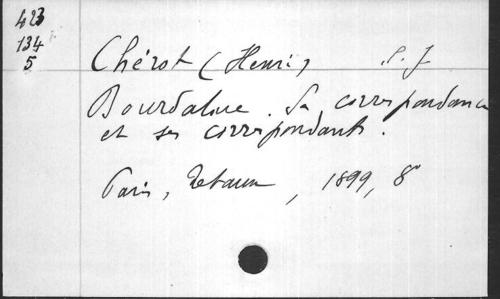 423
134
5
Chérot (Henri) S. J.
Bourdaloue. Sa correspondance
et ses correspondants.
Paris, Retaux, 1899, 8°